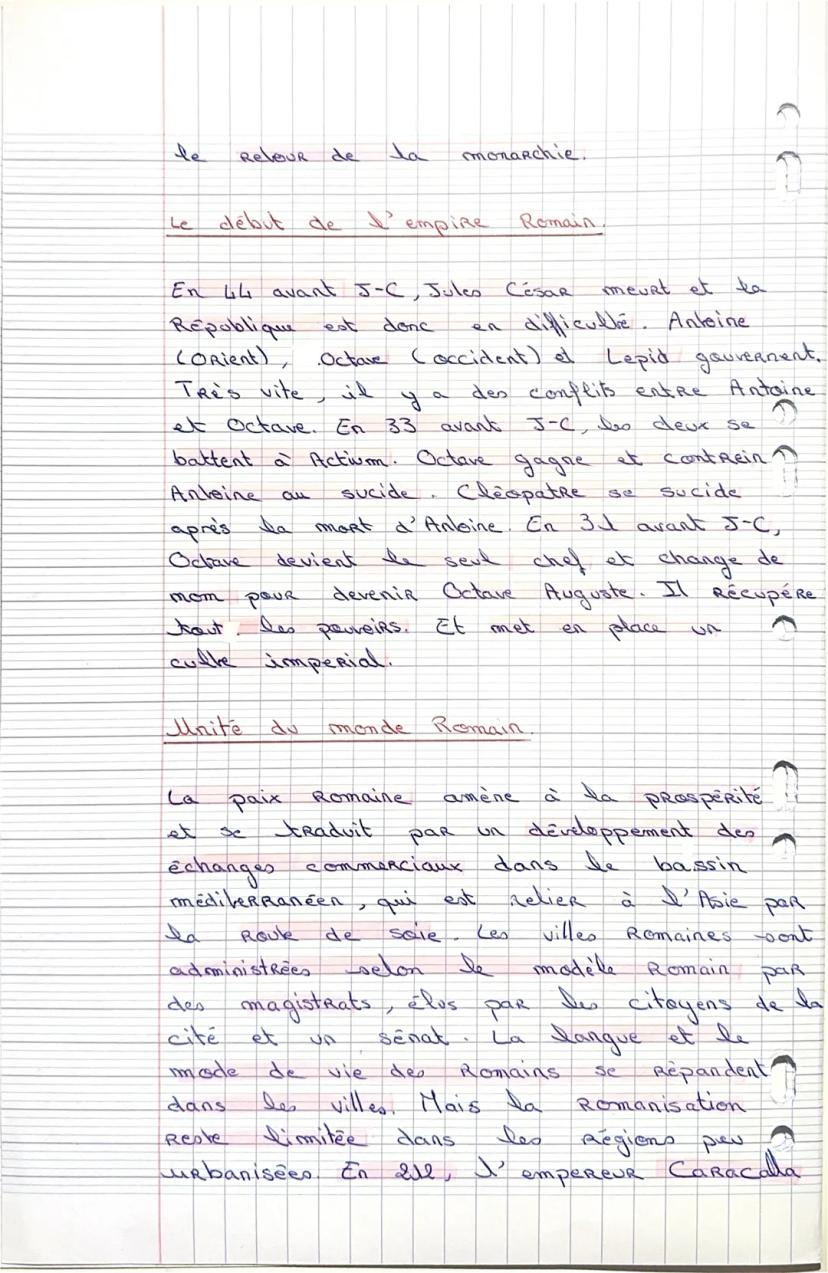 le retour de la monarchie.
Le début de l'empire Romain.
En 44 avant J-C, Jules César meurt et la
République est donc en difficulté. Antoine
(Orient), Octave (occident) et Lepid gouvernent.
Très vite, il y a des conflits entre Antoine
et Octave. En 33 avant J-C, les deux se
battent à Actium. Octave gagne et contrein
Antoine au sucide. Cléopatre se sucide
après la mort d'Antoine. En 31 avant J-C,
Octave devient le seul chef et change de
nom pour devenir Octave Auguste. Il récupére
tout les pouvoirs. Et met en place un
culte imperial.
Unité du monde Romain.
La paix romaine amène à la prospérité
et se traduit par un développement des
échanges commerciaux dans le bassin
méditerranéen, qui est relier à l'Asie par
la route de soie. Les villes Romaines sont
administrées selon le modèle Romain par
des magistrats, élus par les citoyens de la
cité et un sénat. La langue et le
mode de vie des Romains se répandent
dans les villes. Mais la romanisation
reste limitée dans les régions peu
urbanisées. En 212, l'empereur Caracalla